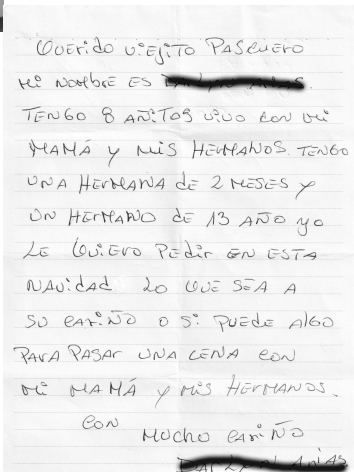 Querido viejito Pascuero
mi nombre es
Tengo 8 añitos vivo con mi
mamá y mis hermanos. Tengo
una hermana de 2 meses y
un hermano de 13 año yo
le quiero pedir en esta
navidad lo que sea a
su cariño o si puede algo
para pasar una cena con
mi mamá y mis hermanos.
con
mucho cariño